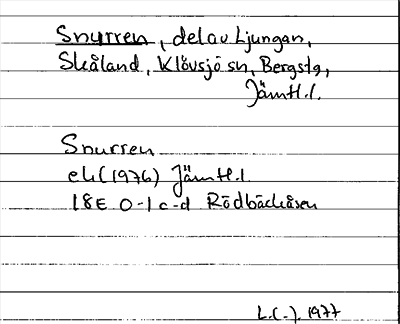 Snurren, del av Ljungan,
Skåland, Klövsjö sn, Bergs tg,
Jämtl. l.
Snurren
ek (1976) Jämtl. l.
18E 0-1 c-d Rödbäckåsen
L. (-). 1977